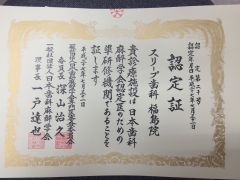 認定証
スリープ歯科 福島院
貴診療施設は日本歯科
麻酔学会認定医のための
準研修機関であることを
証します
委員長 深山治久
一般社団法人日本歯科麻酔学会
理事長 一戸達也